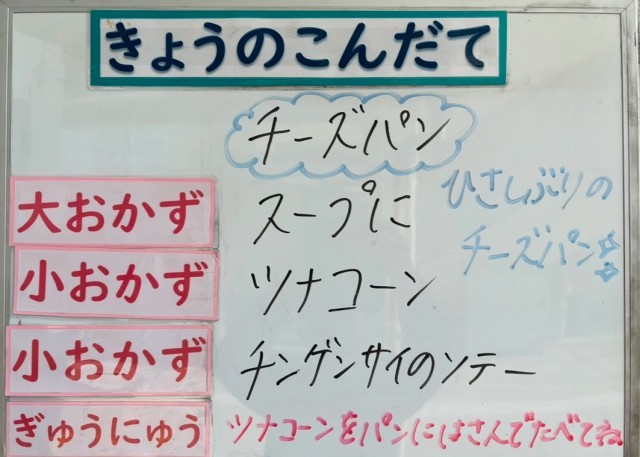 きょうのこんだて
チーズパン
大おかず スープに
ひさしぶりの
チーズパン
小おかず ツナコーン
小おかず チンゲンサイのソテー
ぎゅうにゅう ツナコーンをパンにはさんでたべてね